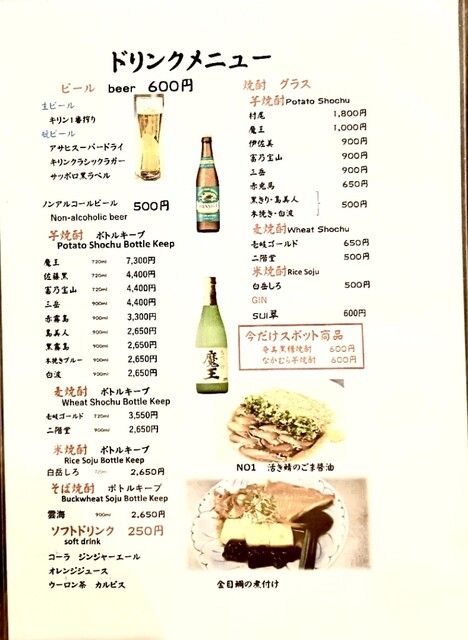 ドリンクメニュー
ビール beer 600円
生ビール
キリン1番搾り
瓶ビール
アサヒスーパードライ
キリンクラシックラガー
サッポロ黒ラベル
ノンアルコールビール 500円
Non-alcoholic beer
芋焼酎 ボトルキープ
Potato Shochu Bottle Keep
魔王 720ml 7,300円
佐藤黒 720ml 4,400円
富乃宝山 720ml 4,400円
三岳 900ml 4,400円
赤霧島 900ml 3,300円
島美人 900ml 2,650円
黒霧島 900ml 2,650円
木挽きブルー 900ml 2,650円
白波 900ml 2,650円
麦焼酎 ボトルキープ
Wheat Shochu Bottle Keep
壱岐ゴールド 720ml 3,550円
二階堂 900ml 2,650円
米焼酎 ボトルキープ
Rice Soju Bottle Keep
白岳しろ 2,650円
そば焼酎 ボトルキープ
Buckwheat Soju Bottle Keep
雲海 900ml 2,650円
ソフトドリンク 250円
soft drink
コーラ ジンジャーエール
オレンジジュース
ウーロン茶 カルピス
焼酎 グラス
芋焼酎Potato Shochu
村尾 1,800円
魔王 1,000円
伊佐美 900円
富乃宝山 900円
三岳 900円
赤兎馬 650円
黒きり・島美人
木挽き・白波 500円
麦焼酎Wheat Shochu
壱岐ゴールド 650円
二階堂 500円
米焼酎Rice Soju
白岳しろ 500円
GIN
SUI翠 600円
今だけスポット商品
奄美黒糖焼酎 600円
なかむら芋焼酎 600円
魔王
NO1 活き鯖のごま醤油
金目鯛の煮付け